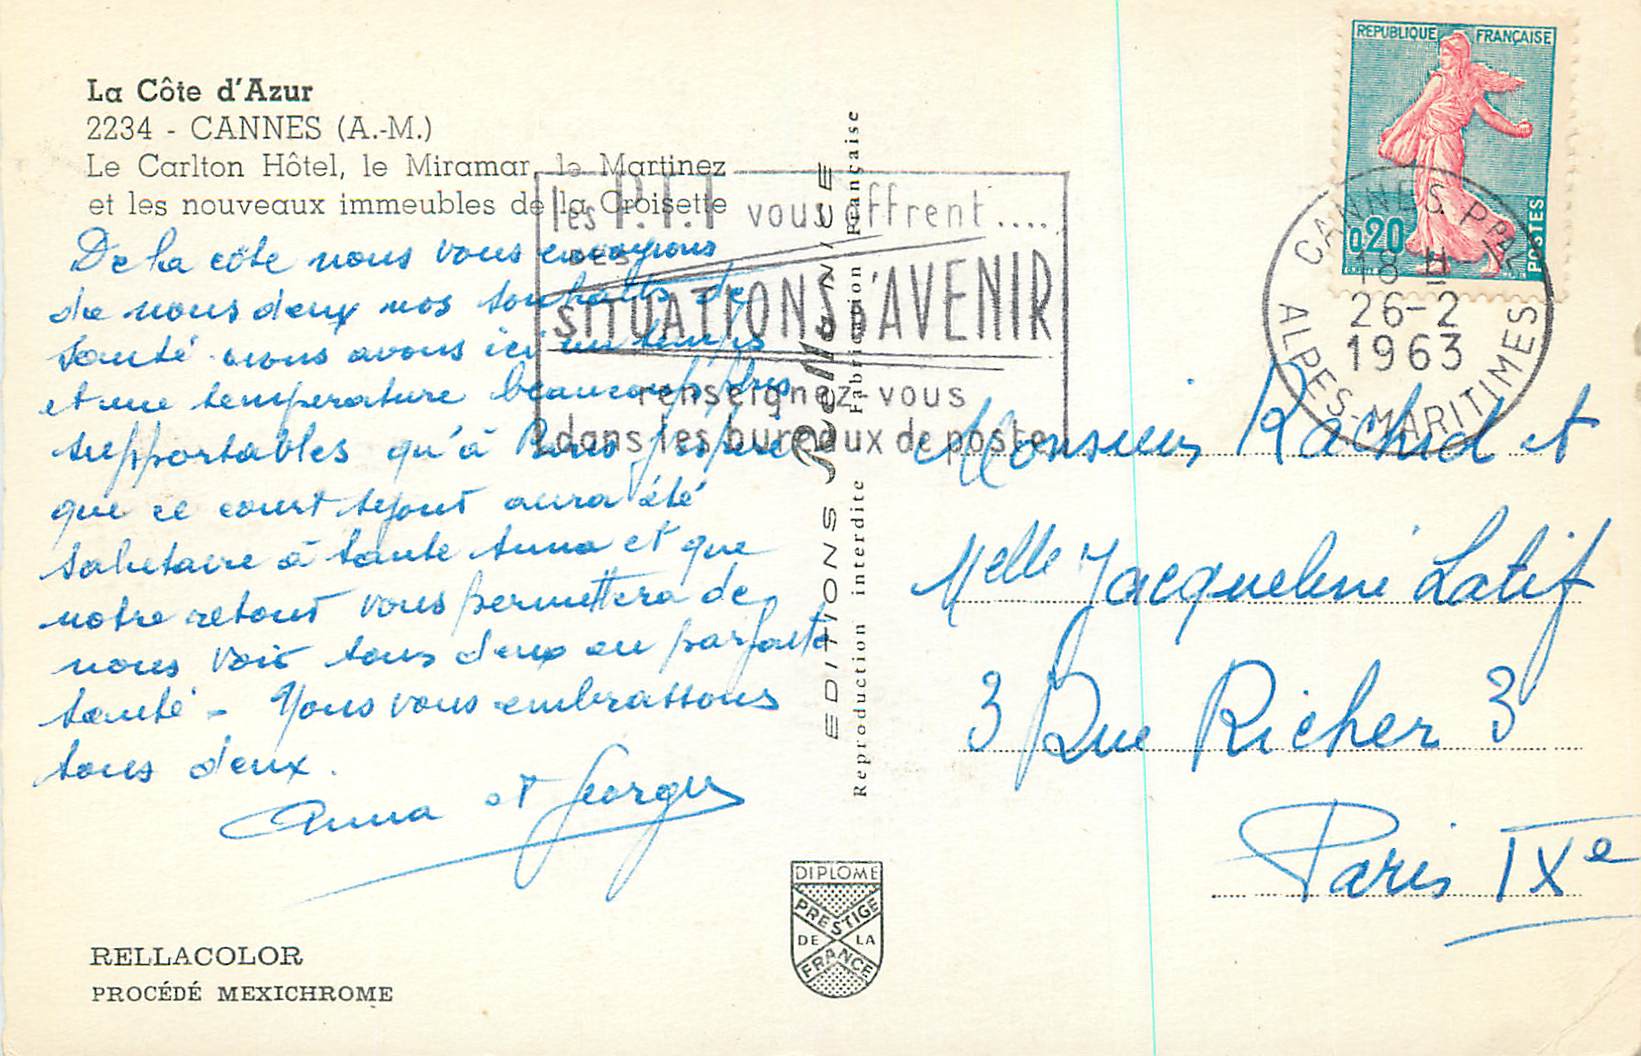 La Côte d'Azur
2234 - CANNES (A.-M.)
Le Carlton Hôtel, le Miramar, le Martinez
et les nouveaux immeubles de la Croisette
De la côte nous vous envoyons
de nous deux nos souhaits de
santé. nous avons ici un temps
et une temperature beaucoup plus
supportables qu'à Paris j'espère
que ce court séjour aura été
salutaire à tante Anna et que
notre retour vous permettra de
nous voir tous deux en parfaite
santé - Nous vous embrassons
tous deux.
Anna et Georges
RELLACOLOR
PROCÉDÉ MEXICHROME
les P.T.T vous offrent....
DES
SITUATIONS D'AVENIR
renseignez-vous
dans les bureaux de poste
EDITIONS Rella NICE
Reproduction interdite Fabrication Française
DIPLOME
PRESTIGE
DE LA
FRANCE
REPUBLIQUE FRANÇAISE
0,20
POSTES
CANNES PPAL
18 H
26-2
1963
ALPES-MARITIMES
Monsieur Rachid et
Melle Jacqueline Latif
3 Rue Richer 3
Paris IXe